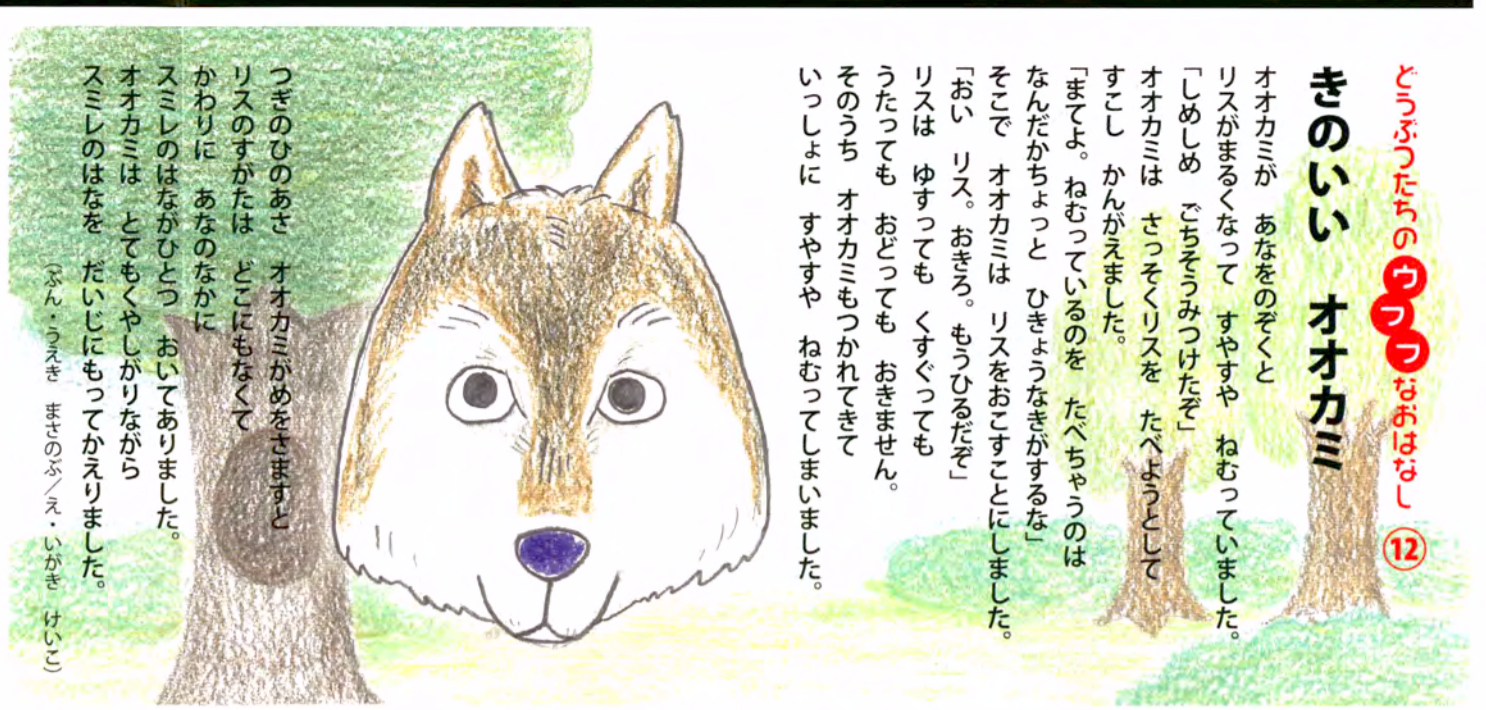 どうぶつたちのウフフなおはなし ⑫
きのいい　オオカミ
オオカミが　あなをのぞくと
リスがまるくなって　すやすや　ねむっていました。
「しめしめ　ごちそうみつけたぞ」
オオカミは　さっそくリスを　たべようとして
すこし　かんがえました。
「まてよ。ねむっているのを　たべちゃうのは
なんだかちょっと　ひきょうなきがするな」
そこで　オオカミは　リスをおこすことにしました。
「おい　リス。おきろ。もうひるだぞ」
リスは　ゆすっても　くすぐっても
うたっても　おどっても　おきません。
そのうち　オオカミもつかれてきて
いっしょに　すやすや　ねむってしまいました。
つぎのひのあさ　オオカミがめをさますと
リスのすがたは　どこにもなくて
かわりに　あなのなかに
スミレのはながひとつ　おいてありました。
オオカミは　とてもくやしがりながら
スミレのはなを　だいじにもってかえりました。
（ぶん・うえき　まさのぶ／え・いがき　けいこ）